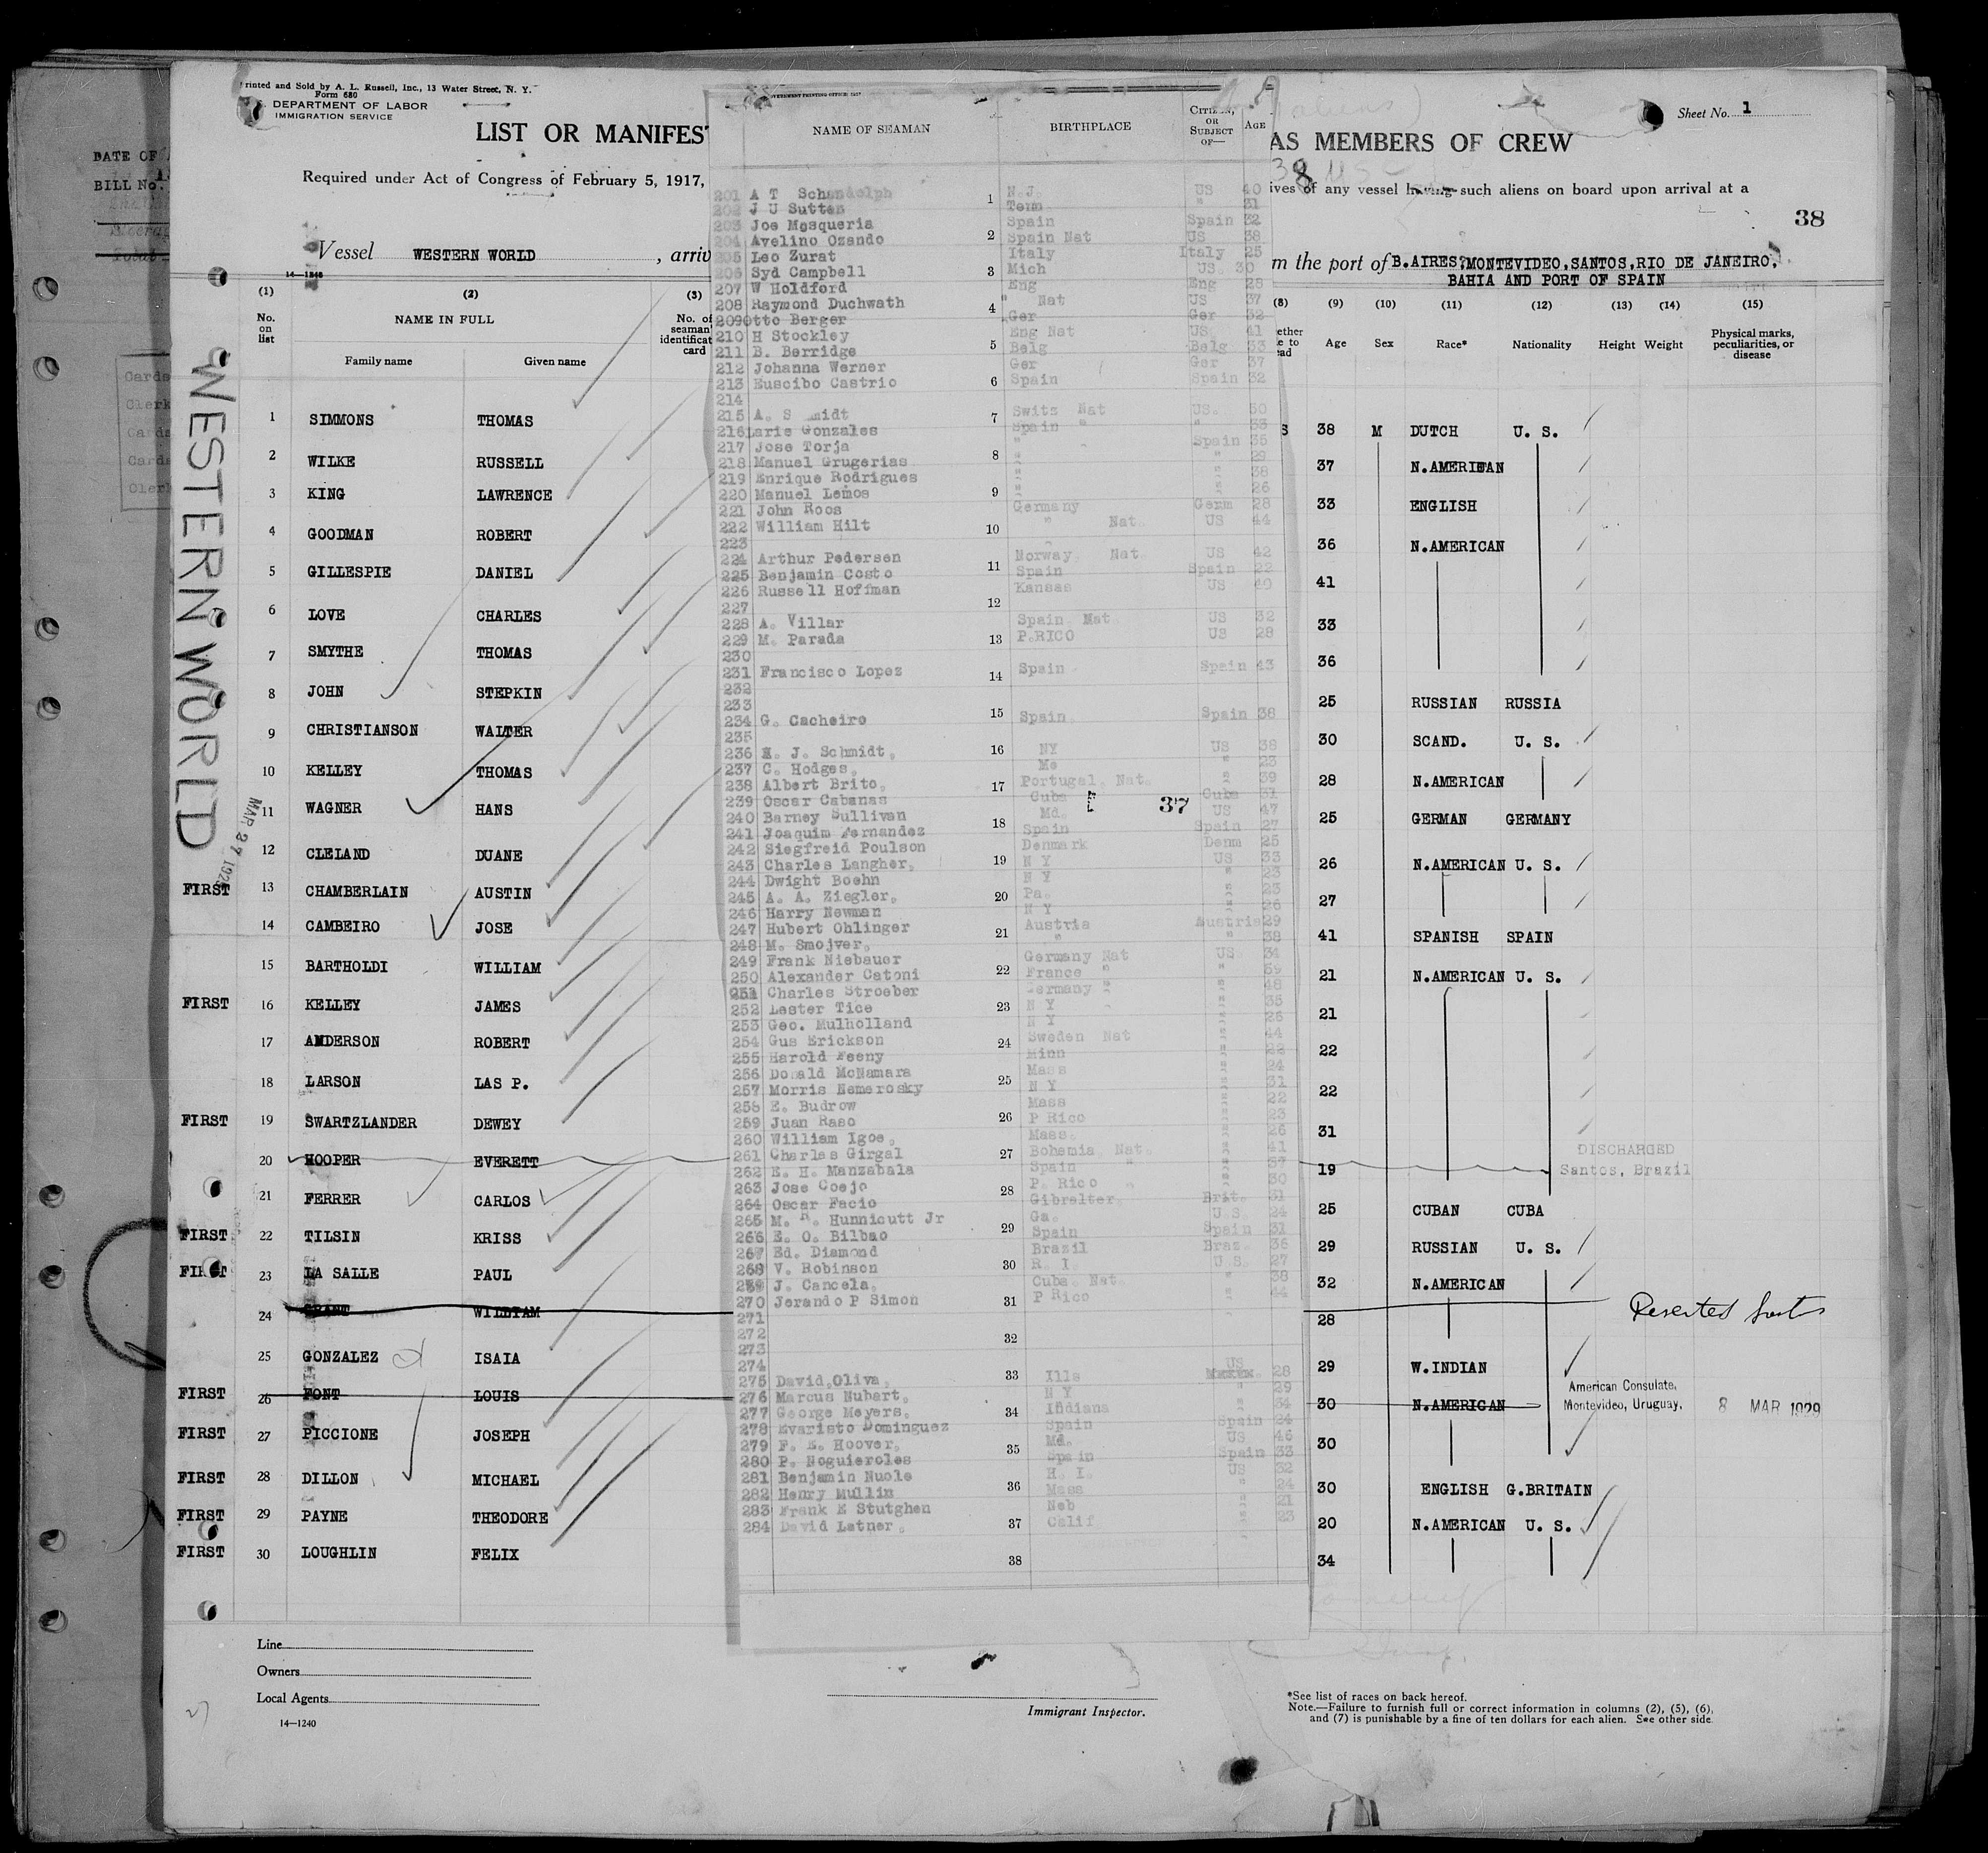 Printed and Sold by A. L. Russell, Inc., 13 Water Street, N. Y.
Form 680
DEPARTMENT OF LABOR
IMMIGRATION SERVICE
Sheet No. 1
LIST OR MANIFEST
AS MEMBERS OF CREW
Required under Act of Congress of February 5, 1917,
ives of any vessel having such aliens on board upon arrival at a
38
Vessel WESTERN WORLD , arriv
m the port of B.AIRES,MONTEVIDEO,SANTOS,RIO DE JANEIRO,
BAHIA AND PORT OF SPAIN
DATE OF
BILL No.
WESTERN WORLD
(1) (2) (3)
No. on list
NAME IN FULL
Family name Given name
No. of seaman's identification card
(8) (9) (10) (11) (12) (13) (14) (15)
Age Sex Race* Nationality Height Weight Physical marks, peculiarities, or disease
1 SIMMONS THOMAS 38 M DUTCH U. S.
2 WILKE RUSSELL 37 N.AMERICAN
3 KING LAWRENCE 33 ENGLISH
4 GOODMAN ROBERT 36 N.AMERICAN
5 GILLESPIE DANIEL 41
6 LOVE CHARLES 33
7 SMYTHE THOMAS 36
8 JOHN STEPKIN 25 RUSSIAN RUSSIA
9 CHRISTIANSON WALTER 30 SCAND. U. S.
10 KELLEY THOMAS 28 N.AMERICAN
11 WAGNER HANS 25 GERMAN GERMANY
12 CLELAND DUANE 26 N.AMERICAN U. S.
FIRST 13 CHAMBERLAIN AUSTIN 27
14 CAMBEIRO JOSE 41 SPANISH SPAIN
15 BARTHOLDI WILLIAM 21 N.AMERICAN U. S.
FIRST 16 KELLEY JAMES 21
17 ANDERSON ROBERT 22
18 LARSON LAS P. 22
FIRST 19 SWARTZLANDER DEWEY 31
20 HOOPER EVERETT 19 DISCHARGED Santos, Brazil
21 FERRER CARLOS 25 CUBAN CUBA
FIRST 22 TILSIN KRISS 29 RUSSIAN U. S.
FIRST 23 LA SALLE PAUL 32 N.AMERICAN
24 GRANT WILLIAM 28 Deserted
25 GONZALEZ ISAIA 29 W.INDIAN
FIRST 26 FONT LOUIS 30 N.AMERICAN American Consulate, Montevideo, Uruguay. 8 MAR 1929
FIRST 27 PICCIONE JOSEPH 30
FIRST 28 DILLON MICHAEL 30 ENGLISH G.BRITAIN
FIRST 29 PAYNE THEODORE 20 N.AMERICAN U. S.
FIRST 30 LOUGHLIN FELIX 34
NAME OF SEAMAN BIRTHPLACE CITIZEN, OR SUBJECT OF— AGE
201 A T Schandolph N.J. US 40
202 J U Sutten Tenn " 31
203 Joe Mosqueria Spain Spain 32
204 Avelino Ozando Spain Nat US 38
205 Leo Zurat Italy Italy 25
206 Syd Campbell Mich US. 30
207 W Holdford Eng Eng 28
208 Raymond Duchwath " Nat US 37
209 Otto Berger Ger Ger 32
210 H Stockley Eng Nat US 41
211 B. Berridge Belg Belg 33
212 Johanna Werner Ger Ger 37
213 Euscibo Castrio Spain Spain 32
214
215 A. S midt Switz Nat US. 50
216 arie Gonzales Spain " " 33
217 Jose Torja " Spain 35
218 Manuel Grugerias " " 29
219 Enrique Rodrigues " " 38
220 Manuel Lemos " " 26
221 John Roos Germany Germ 28
222 William Hilt " Nat US 44
223
224 Arthur Pedersen Norway Nat US 42
225 Benjamin Costo Spain Spain 22
226 Russell Hoffman Kansas US 40
227
228 A. Villar Spain Nat US 32
229 M. Parada P.RICO US 28
230
231 Francisco Lopez Spain Spain 43
232
233
234 G. Cacheiro Spain Spain 38
235
236 E. J. Schmidt, NY US 38
237 C. Hodges, Mo " 23
238 Albert Brito, Portugal Nat. " 39
239 Oscar Cabanas Cuba Cuba 31
37
240 Barney Sullivan Md. US 47
241 Joaquim Fernandez Spain Spain 27
242 Siegfreid Poulson Denmark Denm 25
243 Charles Langher, N Y US 33
244 Dwight Boehn N Y " 23
245 A. A. Ziegler, Pa. " 23
246 Harry Newman N Y " 26
247 Hubert Ohlinger Austria Austria 29
248 M. Smojver, " " 38
249 Frank Niebauer Germany Nat US 34
250 Alexander Catoni France " " 59
251 Charles Stroeber Germany " " 48
252 Lester Tice N Y " 35
253 Geo. Mulholland N Y " 26
254 Gus Erickson Sweden Nat " 44
255 Harold Feeny Minn " 22
256 Donald McNamara Mass " 24
257 Morris Nemerosky N Y " 31
258 E. Budrow Mass " 22
259 Juan Raso P Rico " 23
260 William Igoe, Mass. " 26
261 Charles Girgal Bohemia Nat. " 41
262 E. H. Manzabala Spain " " 37
263 Jose Coejo P. Rico " 30
264 Oscar Facio Gibralter Brit. 31
265 M. R. Hunnicutt Jr Ga. U.S. 24
266 E. O. Bilbao Spain Spain 31
267 Ed. Diamond Brazil Braz. 36
268 V. Robinson R. I. U.S. 27
269 J. Cancela, Cuba Nat. " 38
270 Jerando P Simon P Rico " 44
271
272
273
274
275 David,Oliva, Ills US 28
276 Marcus Nubert, N Y " 29
277 George Meyers, Indiana " 34
278 Evaristo Dominguez Spain Spain 24
279 F. E. Hoover, Md. US 46
280 P. Noguieroles Spain Spain 33
281 Benjamin Nuole H. I. US 32
282 Henry Mullin Mass " 24
283 Frank E Stutghen Neb " 21
284 David Latner, Calif " 23
Line
Owners
Local Agents
14—1240
Immigrant Inspector.
*See list of races on back hereof.
Note.—Failure to furnish full or correct information in columns (2), (5), (6),
and (7) is punishable by a fine of ten dollars for each alien. See other side.